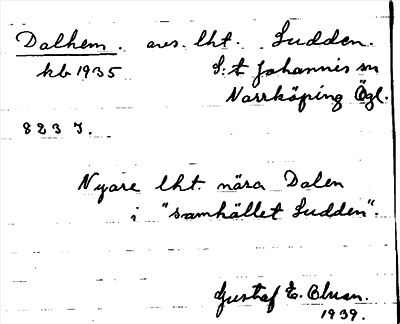 Dalhem. avs. lht. Sudden.
kb 1935 S:t Johannis sn
Norrköping Ögl.
8 2 3 7.
Nyare lht nära Dalen
i "samhället Sudden".
Gustaf E.
1939.